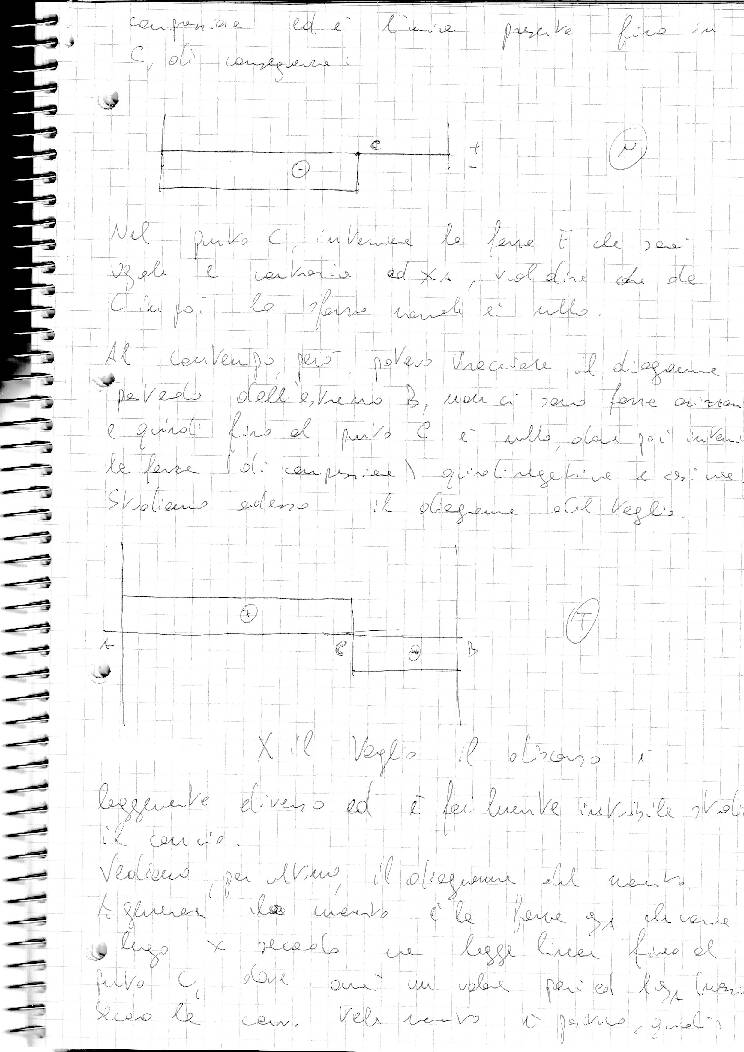 compressione ed è l'unica presente fino in
C, di conseguenza:
C
+
-
N
Nel punto C, interviene la forza F che sarà
uguale e contraria ad XA, vale a dire che da
C in poi lo sforzo normale è nullo.
Al contempo, però potevo tracciare il diagramma
partendo dall'estremo B, non ci sono forze orizzon
e quindi fino al punto C è nullo, dove poi interv
la forza (di compressione) quindi negativa e
Studiamo adesso il diagramma del Taglio.
+
T
A
C
-
B
X il Taglio il discorso è
leggermente diverso ed è facilmente intuibile studi
il concio.
Vediamo, per ultimo, il diagramma del momento.
A generare il momento è la forza che varia
lungo x secondo una legge lineare fino al
punto C, dove avrà un valore pari ad
secondo la conv. tale momento è positivo, quindi